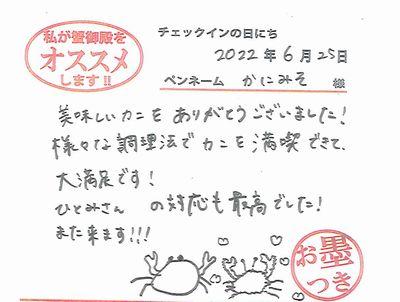 私が蟹御殿を
オススメ
します!!
チェックインの日にち
2022年6月25日
ペンネーム かにみそ 様
美味しいカニをありがとうございました!
様々な調理法でカニを満喫できて、
大満足です!
ひとみさん の対応も最高でした!
また来ます!!!
お墨
つき